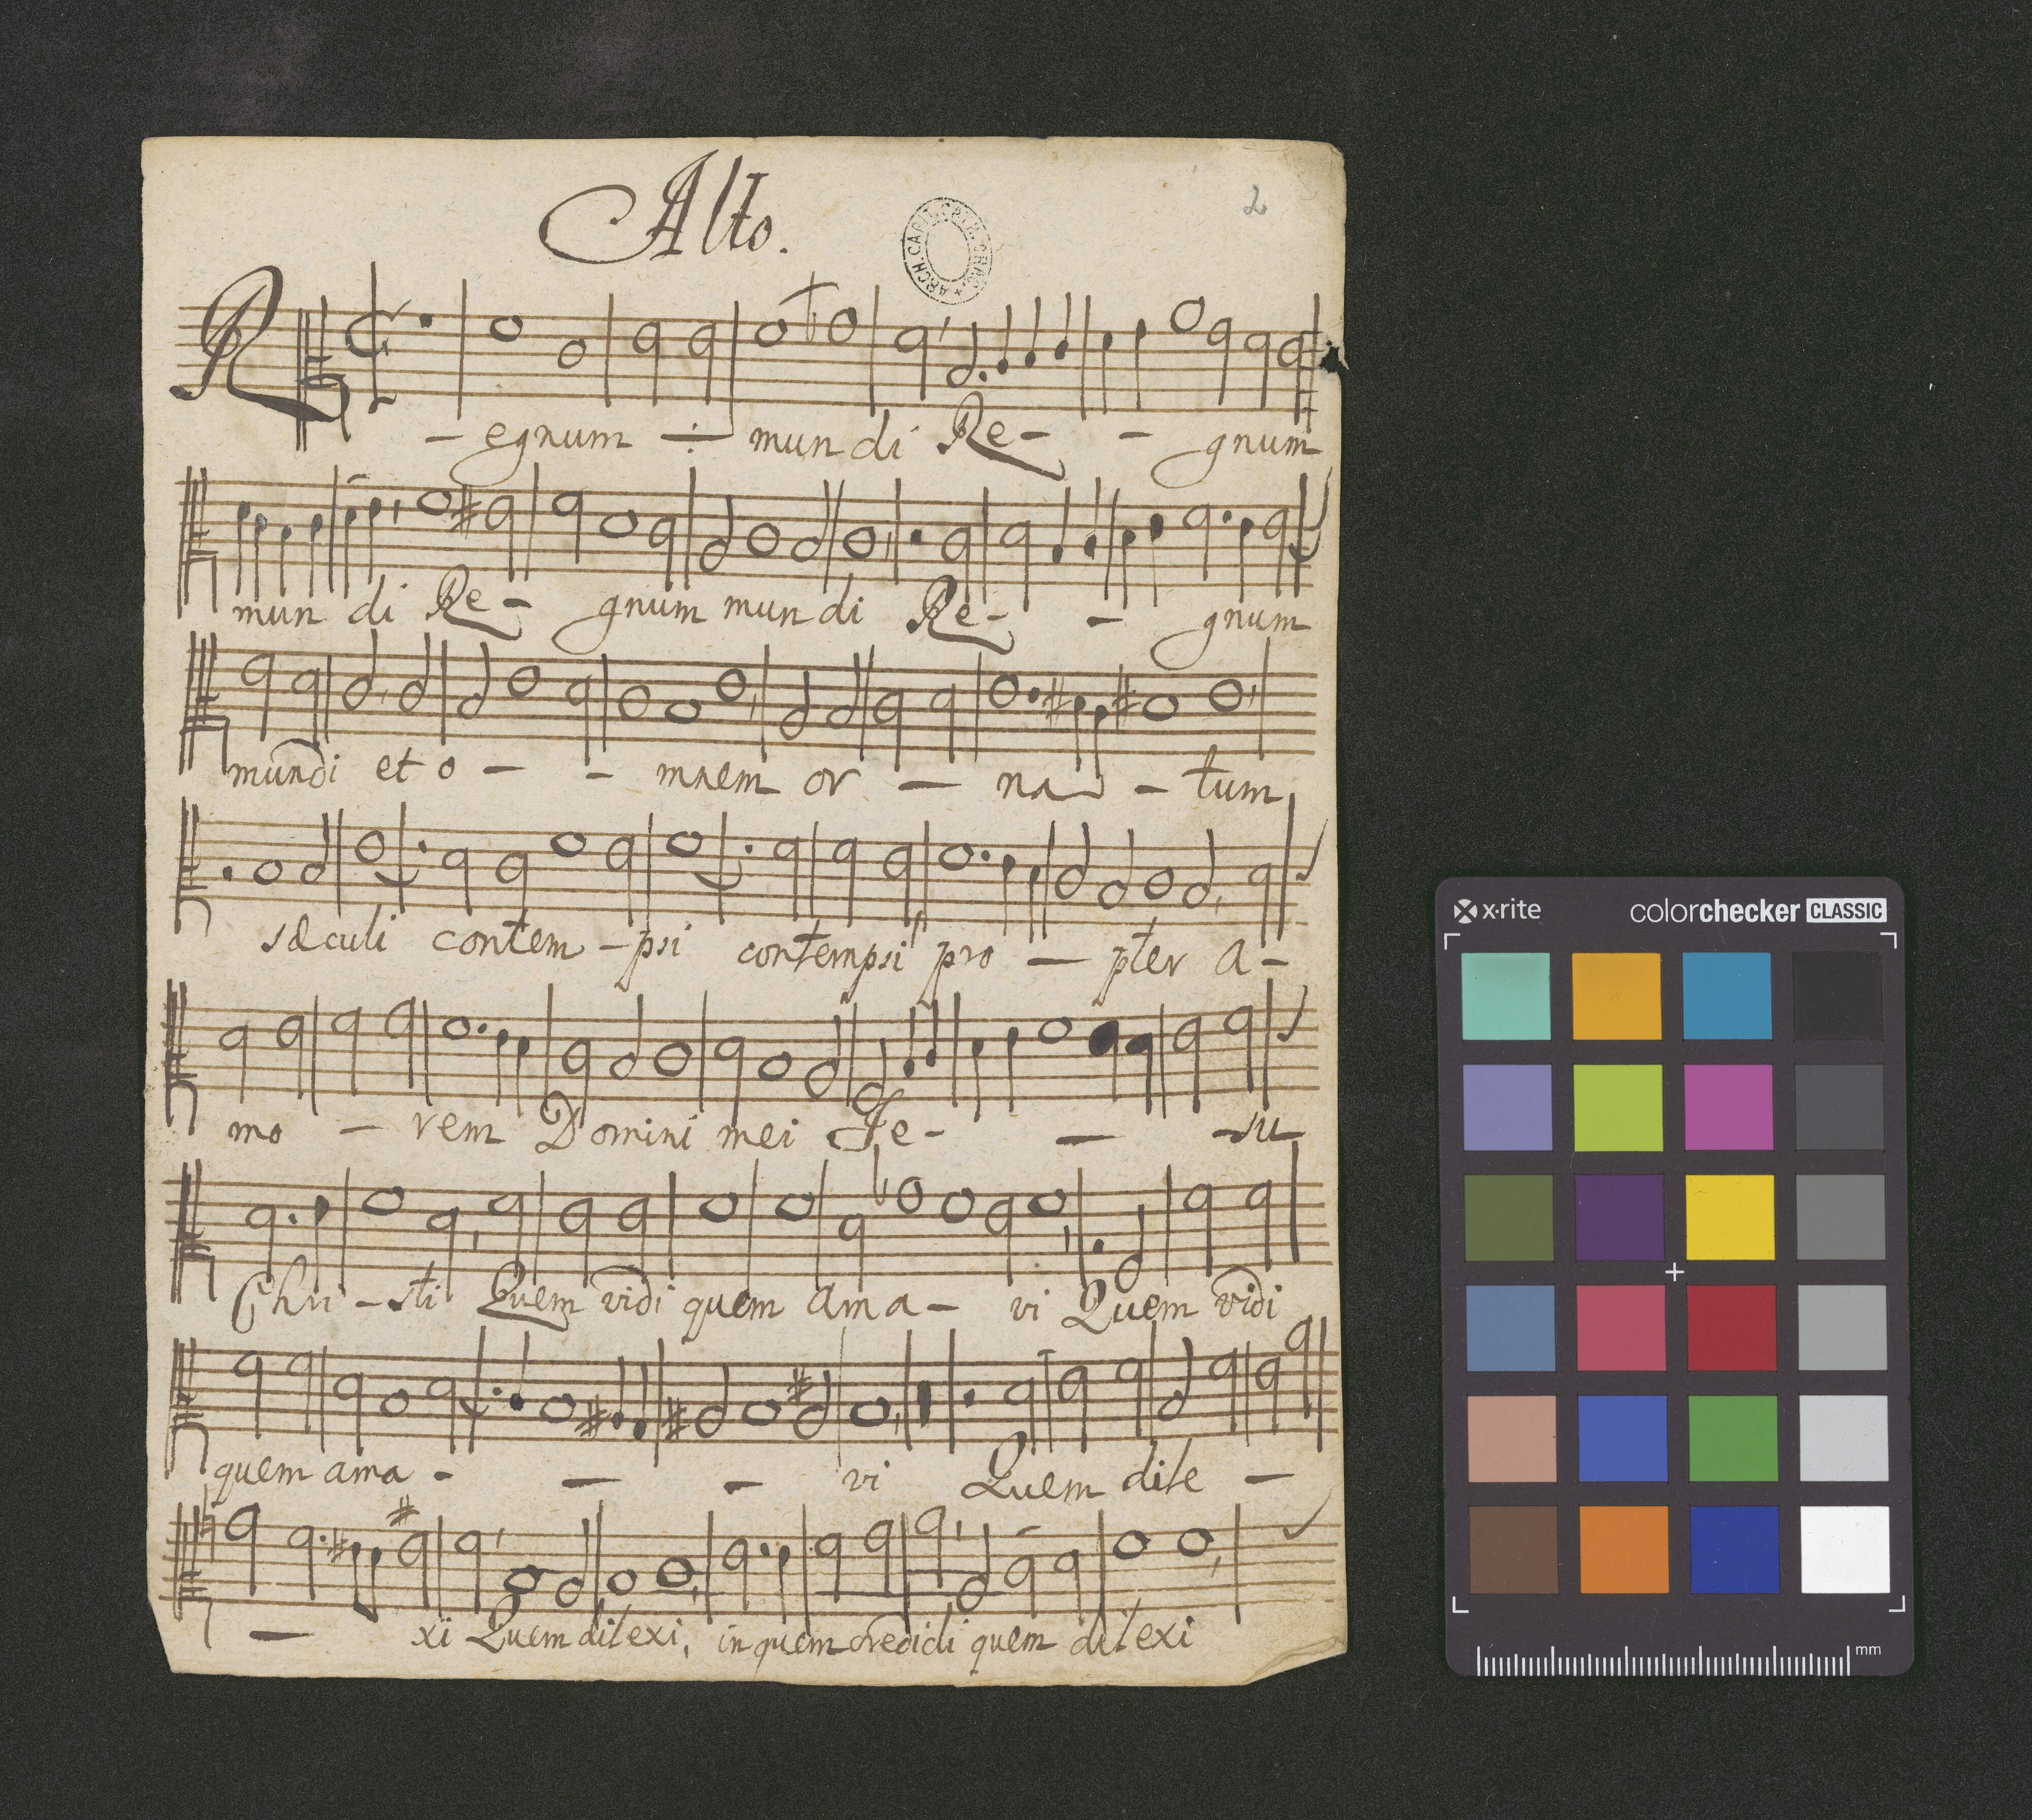 Alto.
2
ARCH. CAPIT.
R - egnum ÷ mundi Re - - gnum
mun di Re - gnum mundi Re - - gnum
mundi et o - - mnem or - na - tum
sæculi contem - psi contempsi pro - pter a -
mo - rem Domini mei Je - - - su
Chri - sti Quem vidi quem ama - vi Quem vidi
quem ama - - - vi Quem dile -
- xi Quem dilexi, in quem credidi quem dilexi
x·rite colorchecker CLASSIC
mm